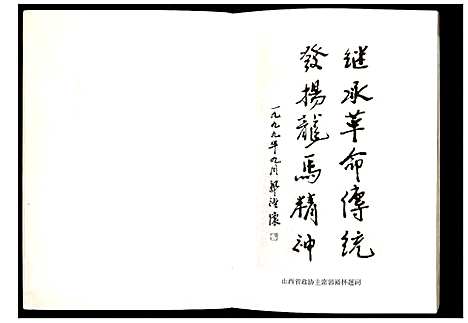 继承革命傳统
發揚龍馬精神
一九九九年九月郭裕懷
山西省政协主席郭裕怀题词